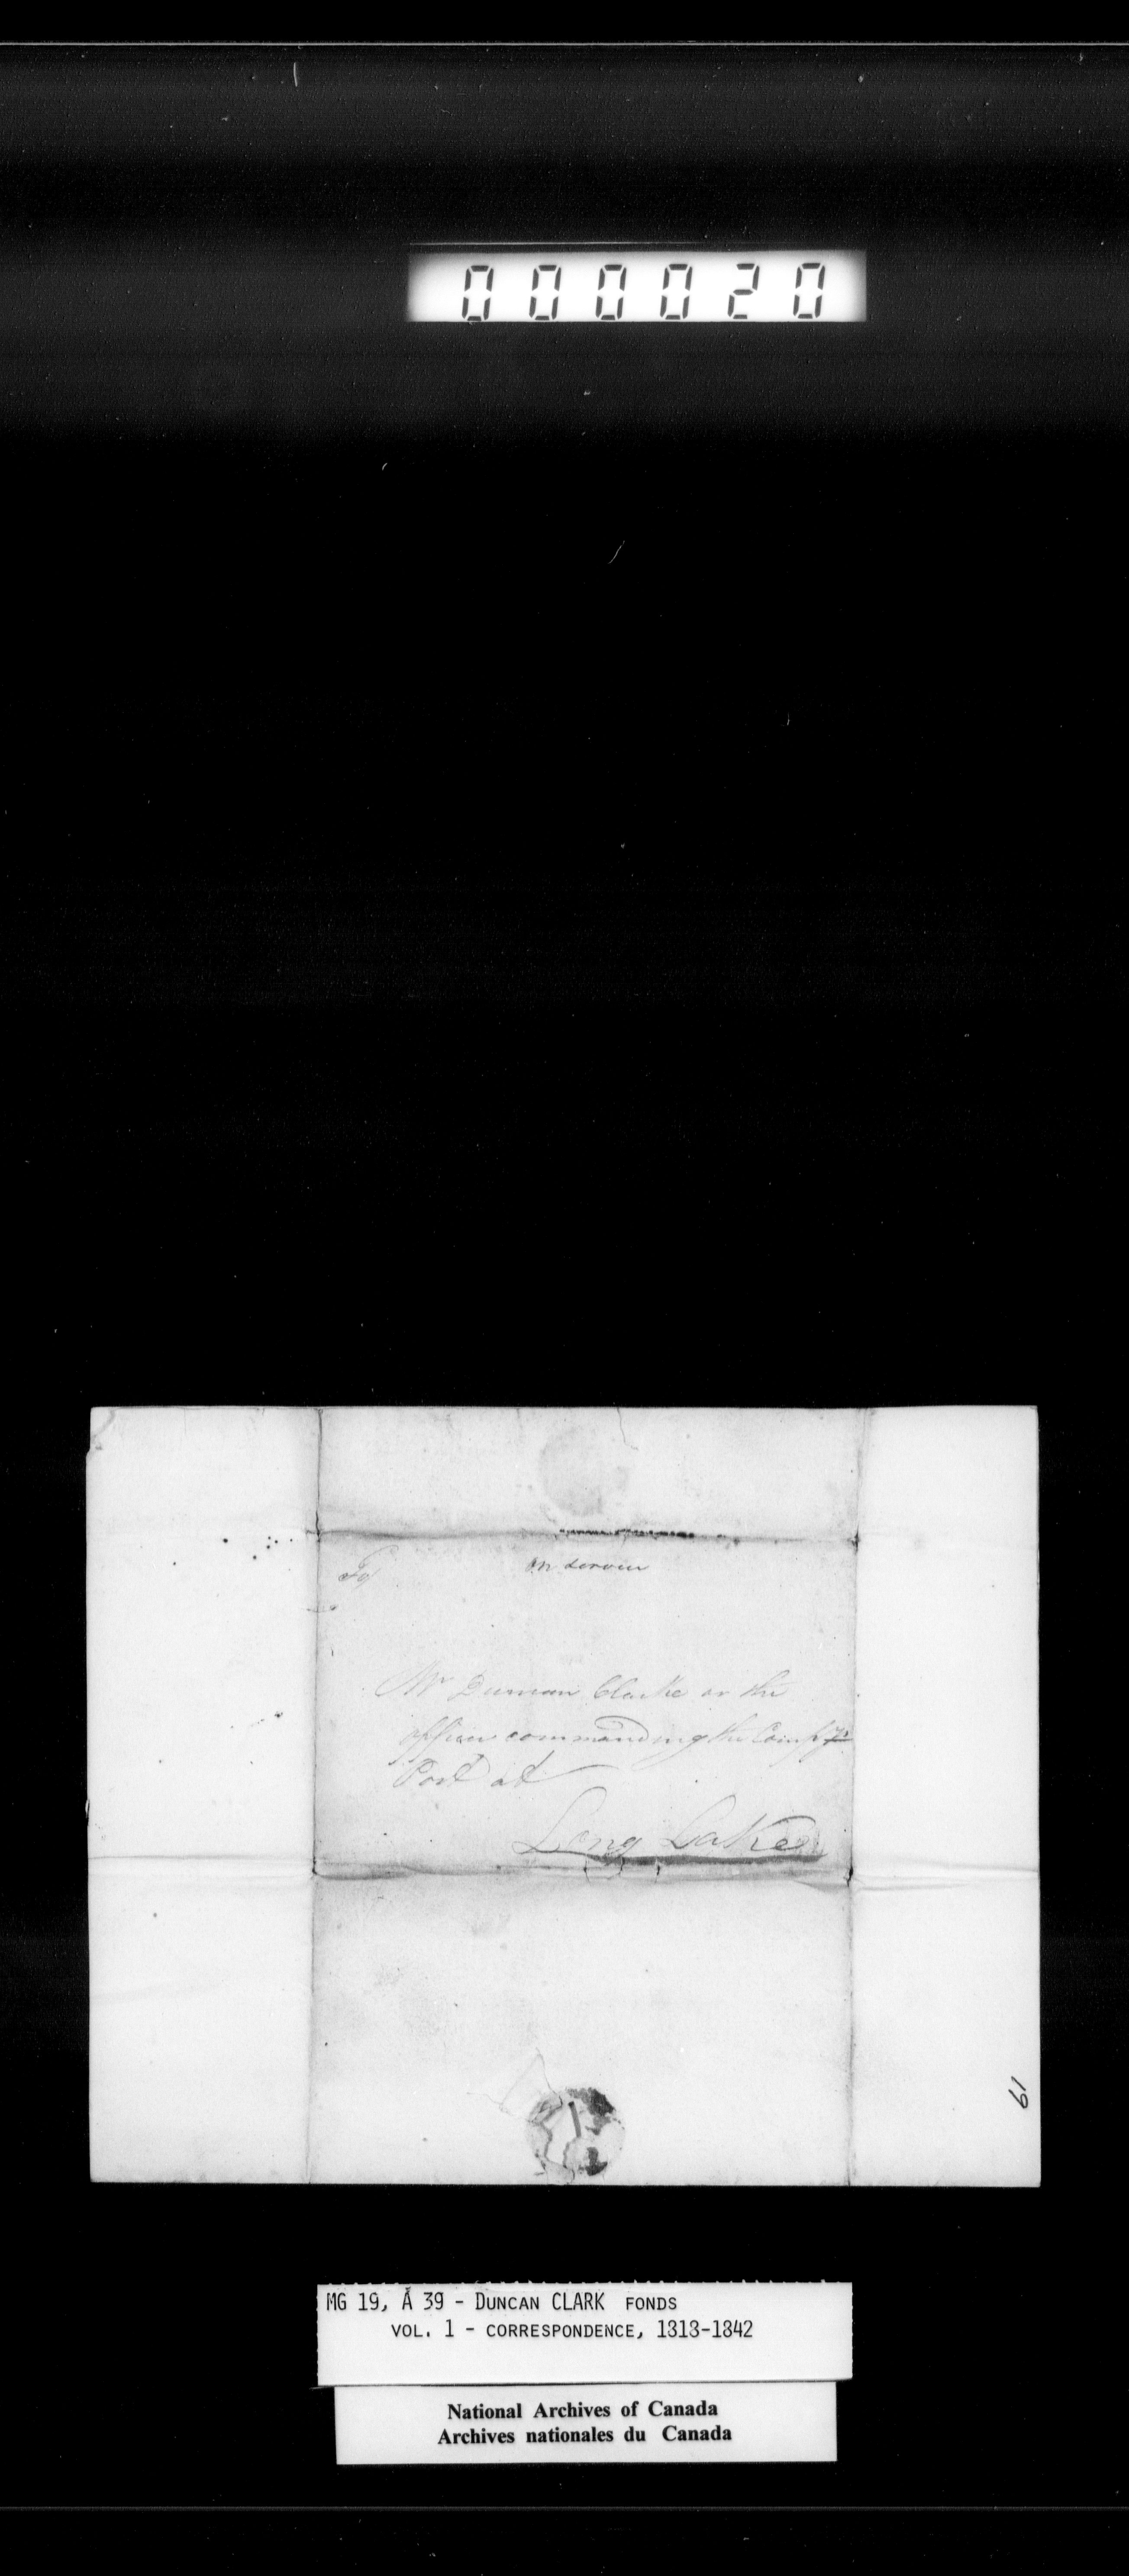 000020
on service
To/
Mr Duncan Clarke or the
officer commanding the Compy's
Post at
Long Lake
19
MG 19, A 39 - DUNCAN CLARK FONDS
VOL. 1 - CORRESPONDENCE, 1818-1842
National Archives of Canada
Archives nationales du Canada